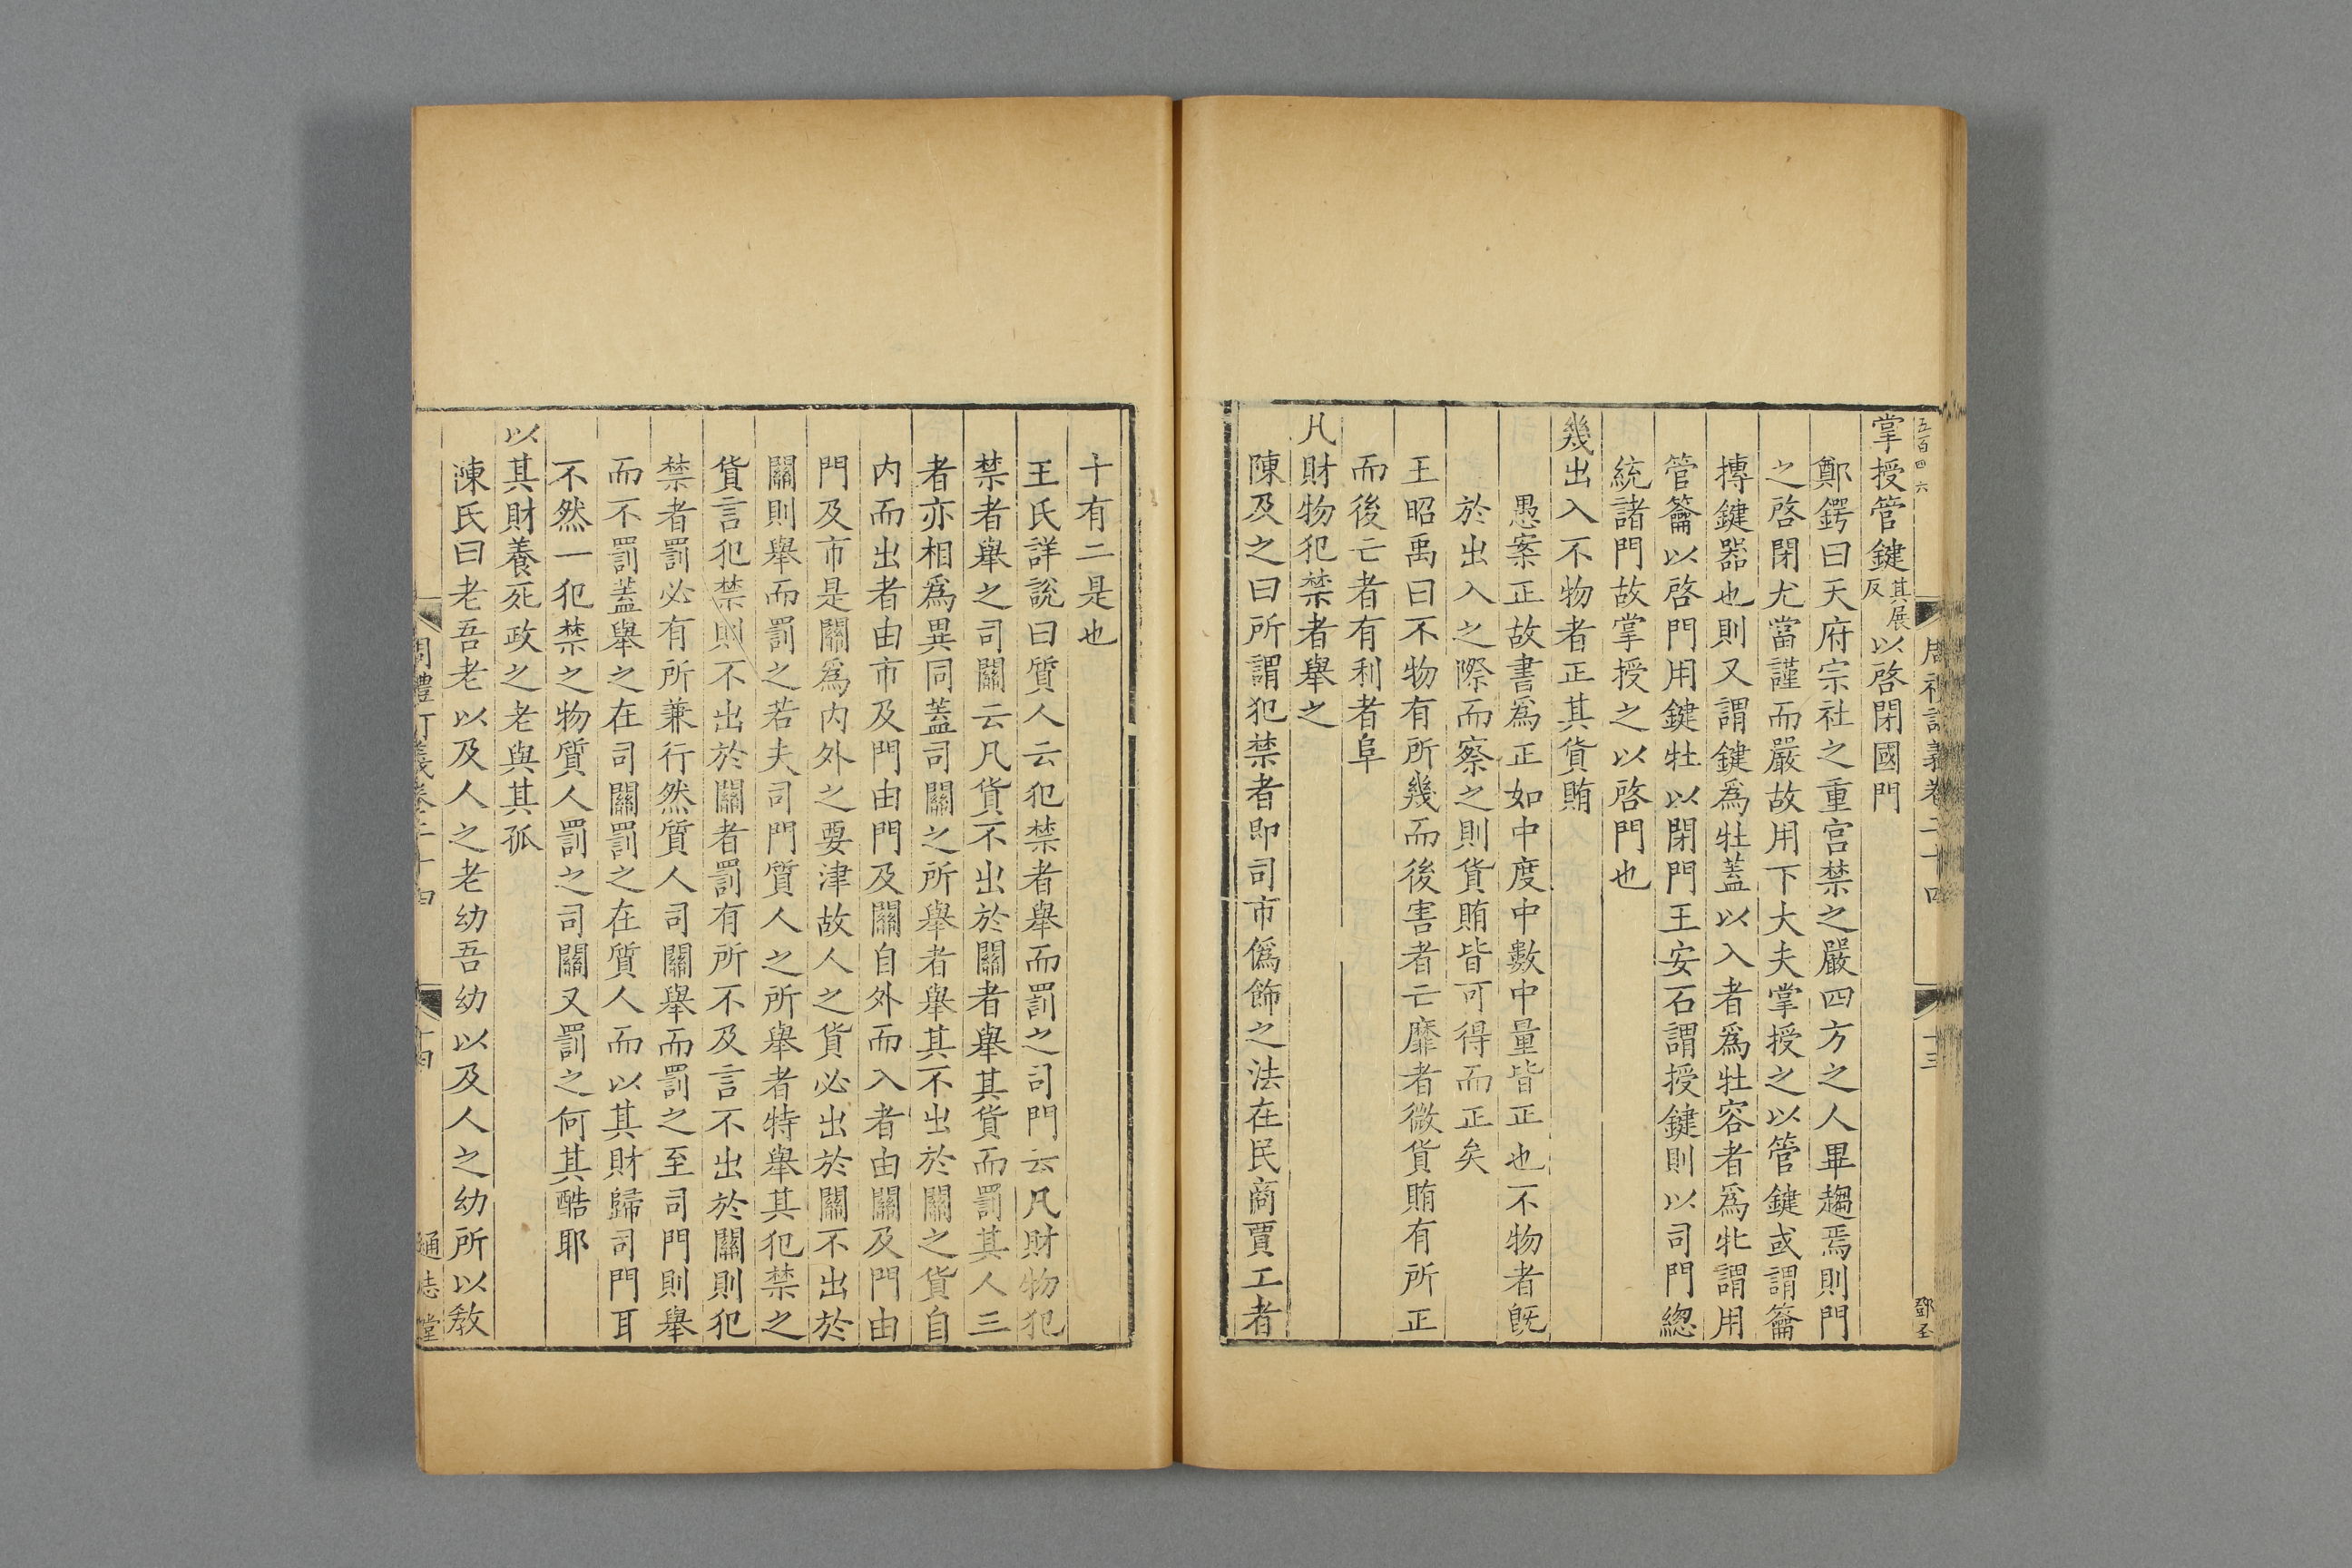 五百四六
周禮訂義卷二十四
十三
鄧玉
掌授管鍵其展反以啓閉國門
鄭鍔曰天府宗社之重宫禁之嚴四方之人畢趨焉則門
之啓閉尤當謹而嚴故用下大夫掌授之以管鍵或謂籥
摶鍵器也則又謂鍵爲牡蓋以入者爲牡容者爲牝謂用
管籥以啓門用鍵牡以閉門王安石謂授鍵則以司門緫
統諸門故掌授之以啓門也
幾出入不物者正其貨賄
愚案正故書爲正如中度中數中量皆正也不物者旣
於出入之際而察之則貨賄皆可得而正矣
王昭禹曰不物有所幾而後害者亡靡者微貨賄有所正
而後亡者有利者阜
凡財物犯禁者舉之
陳及之曰所謂犯禁者即司市僞飾之法在民商賈工者
十有二是也
王氏詳說曰質人云犯禁者舉而罰之司門云凡財物犯
禁者舉之司關云凡貨不出於關者舉其貨而罰其人三
者亦相爲異同蓋司關之所舉者舉其不出於關之貨自
内而出者由市及門由門及關自外而入者由關及門由
門及市是關爲内外之要津故人之貨必出於關不出於
關則舉而罰之若夫司門質人之所舉者特舉其犯禁之
貨言犯禁則不出於關者罰有所不及言不出於關則犯
禁者罰必有所兼行然質人司關舉而罰之至司門則舉
而不罰蓋舉之在司關罰之在質人而以其財歸司門耳
不然一犯禁之物質人罰之司關又罰之何其酷耶
以其財養死政之老與其孤
陳氏曰老吾老以及人之老幼吾幼以及人之幼所以敎
周禮訂義卷二十四
十四
通志堂